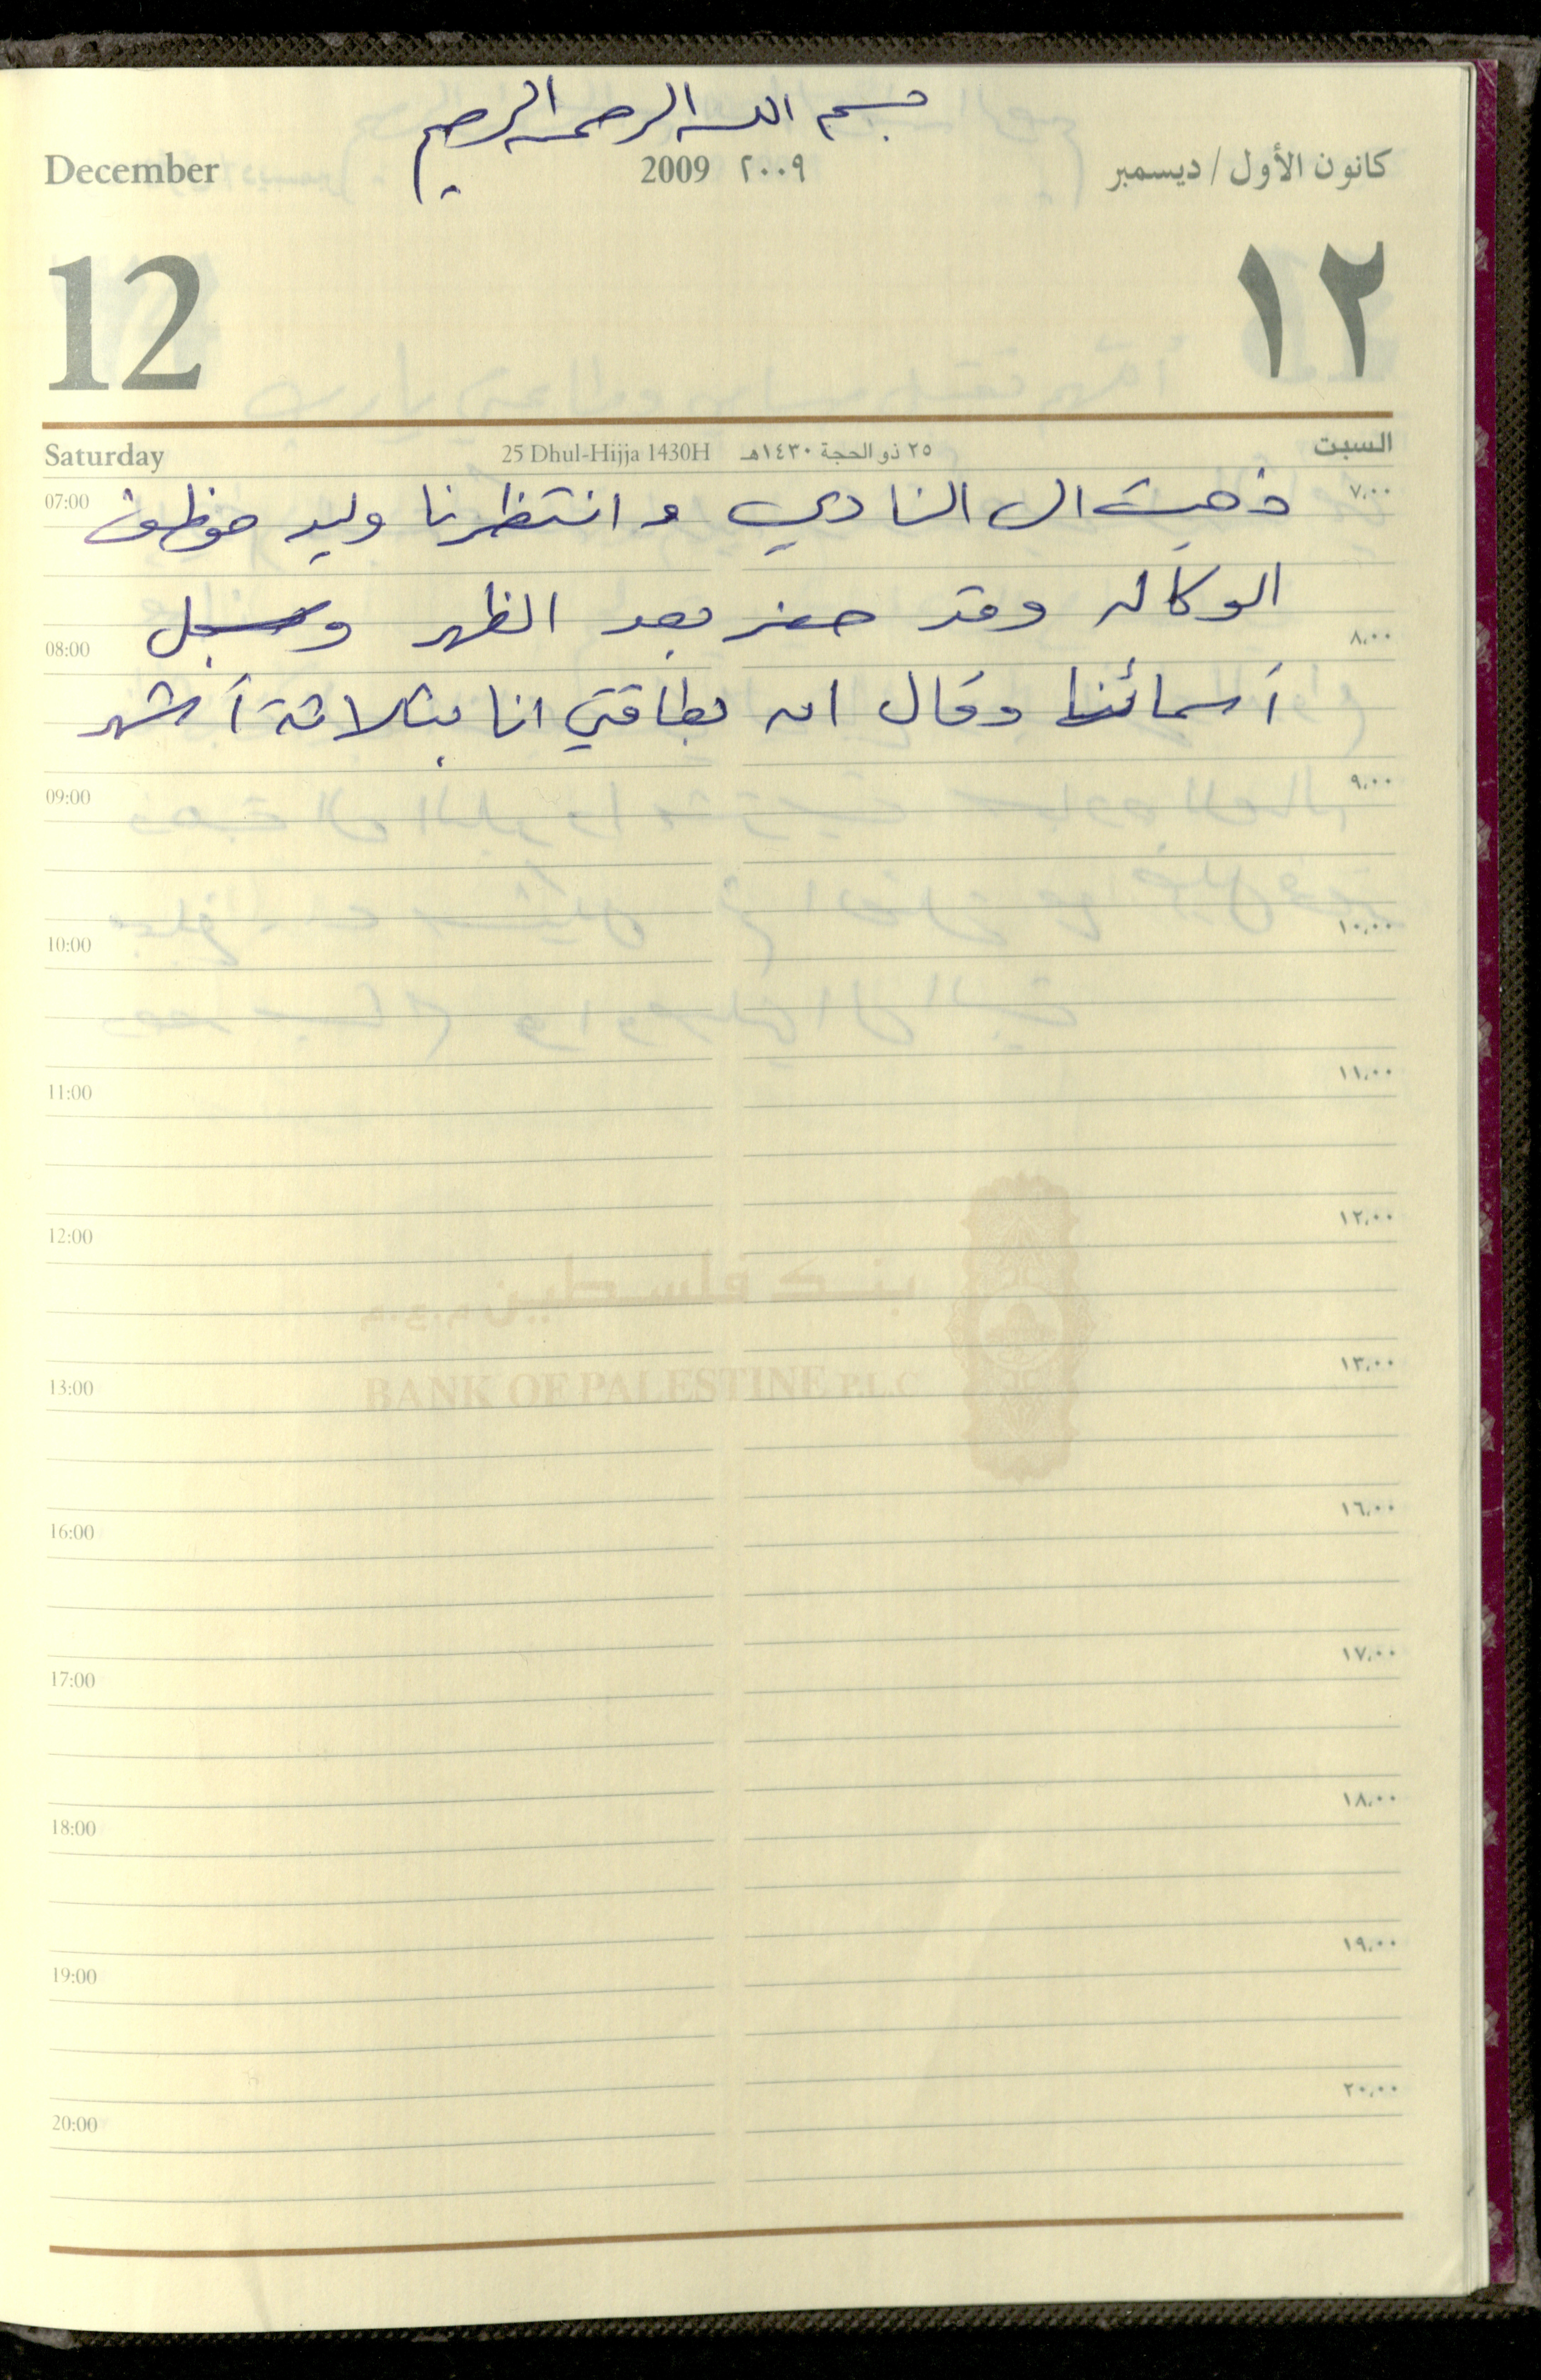 بسم الله الرحمن الرحيم
December 2009 ٢٠٠٩ كانون الأول / ديسمبر
12 ١٢
Saturday 25 Dhul-Hijja 1430H ٢٥ ذو الحجة ١٤٣٠هـ السبت
07:00 ٧,٠٠
ذهبت الى النادي و انتظرنا وليد موظف
الوكاله وقد حضر بعد الظهر وسجل
08:00 ٨,٠٠
أسمائنا وقال ان بطاقتي انا بثلاثة أشهر
09:00 ٩,٠٠
10:00 ١٠,٠٠
11:00 ١١,٠٠
12:00 ١٢,٠٠
بنك فلسطين م.ع.م
BANK OF PALESTINE P.L.C
13:00 ١٣,٠٠
16:00 ١٦,٠٠
17:00 ١٧,٠٠
18:00 ١٨,٠٠
19:00 ١٩,٠٠
20:00 ٢٠,٠٠